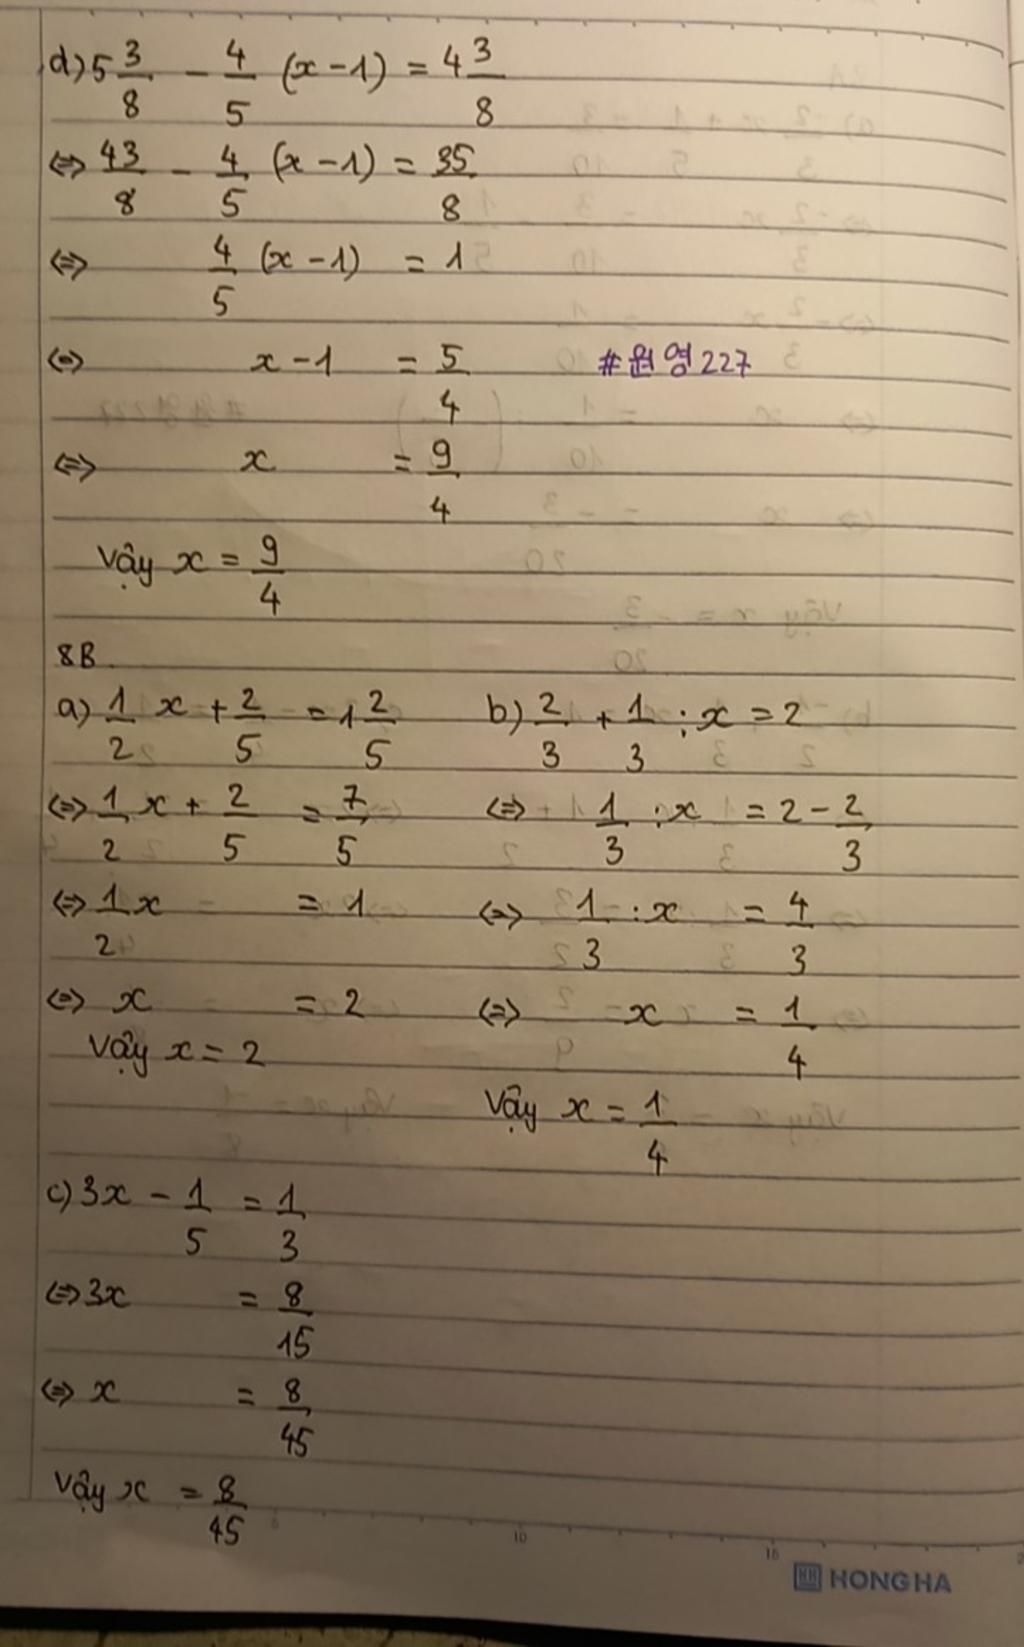 d) 5 3/8 - 4/5 (x - 1) = 4 3/8
⇔ 43/8 - 4/5 (x - 1) = 35/8
⇔ 4/5 (x - 1) = 1
⇔ x - 1 = 5/4 #원영227
⇔ x = 9/4
Vậy x = 9/4
8B.
a) 1/2 x + 2/5 = 1 2/5
⇔ 1/2 x + 2/5 = 7/5
⇔ 1/2 x = 1
⇔ x = 2
Vậy x = 2
b) 2/3 + 1/3 : x = 2
⇔ 1/3 : x = 2 - 2/3
⇔ 1/3 : x = 4/3
⇔ x = 1/4
Vậy x = 1/4
c) 3x - 1/5 = 1/3
⇔ 3x = 8/15
⇔ x = 8/45
Vậy x = 8/45
10 15
HONG HA